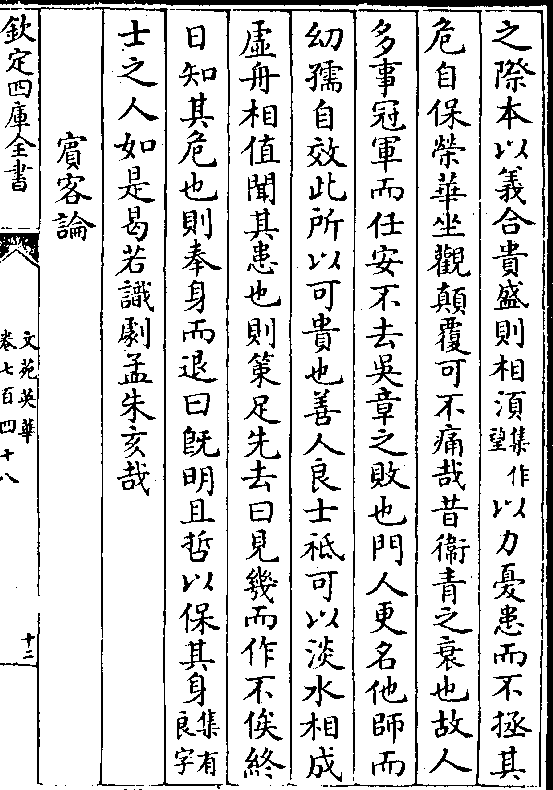 之際本以義合貴盛則相須集作望以力憂患而不拯其
危自保榮華坐觀顛覆可不痛哉昔衛青之衰也故人
多事冠軍而任安不去吳章之敗也門人更名他師而
幼孺自效此所以可貴也善人良士祗可以淡水相成
虛舟相值聞其患也則策足先去曰見幾而作不俟終
日知其危也則奉身而退曰旣明且哲以保其身集有良字
士之人如是曷若識劇孟朱亥哉
賔客論
欽定四庫全書
文苑英華
卷七百四十八
十二